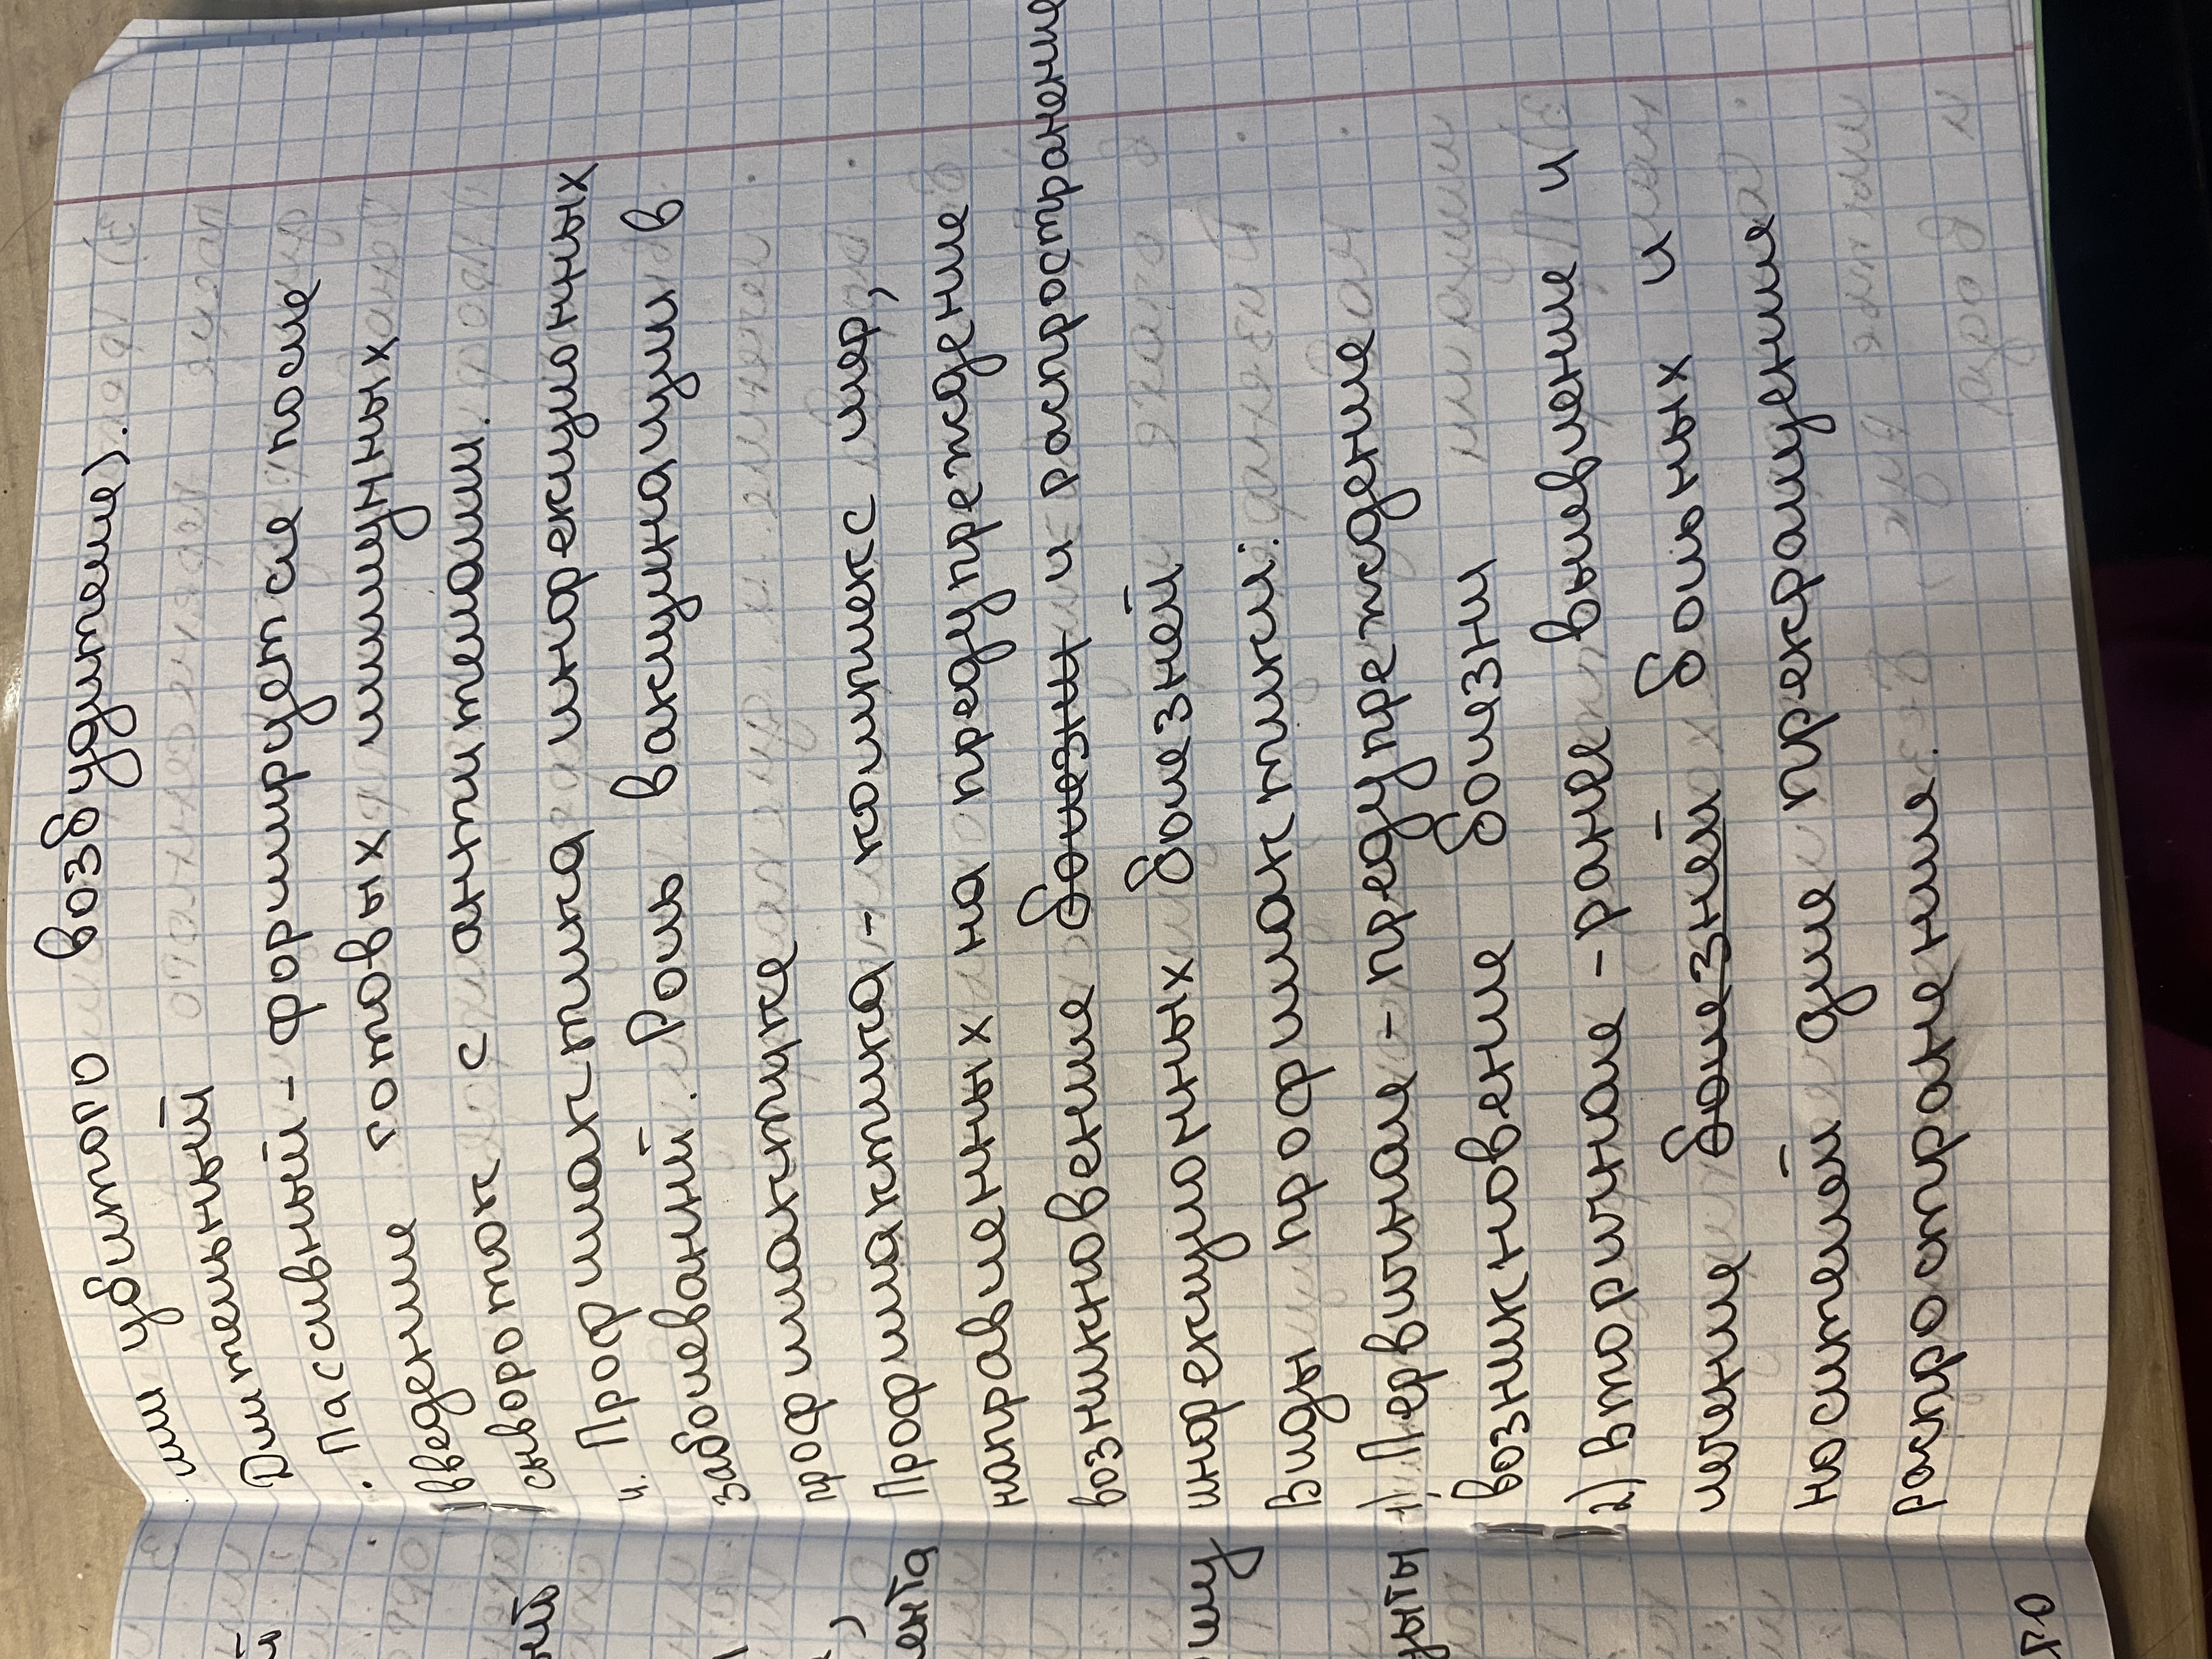 или убитого возбудителя).
Длительный
• Пассивный - формируется после
введение готовых иммунных
сывороток с антителами.
4. Профилактика инфекционных
заболеваний. Роль вакцинации в
профилактике
Профилактика - комплекс мер,
направленных на предупреждение
возникновение болезни и распространение
инфекционных болезней
Виды профилактики:
1) Первичная - предупреждение
возникновение болезни
2) Вторичная - ранее выявление и
лечение болезней больных и
носителей для прекращения
распространения.